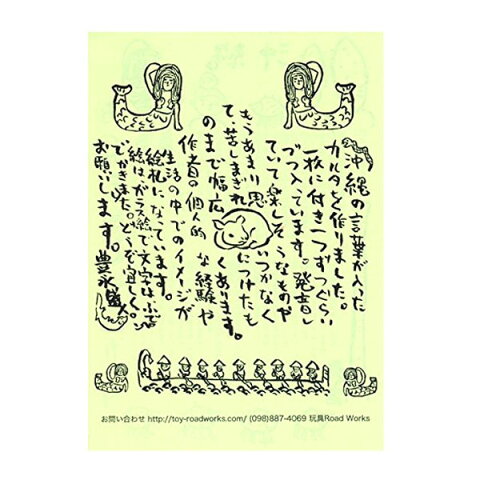 沖縄の言葉が入った
カルタを作りました。
一枚に付き一つずつぐらい
づつ入っています。発音し
ていて楽しそうなものや
もうあまり思いつかなく
て、苦しまぎれにつけたも
のまで幅広くあります。
作者の個人的な経験や
生活の中でのイメージが
絵札になっています。
絵は、ガラス絵で文字はふで
でかきました。どうぞ宜しく
お願いします。豊永盛人
お問い合わせ http://toy-roadworks.com/ (098)887-4069 玩具Road Works